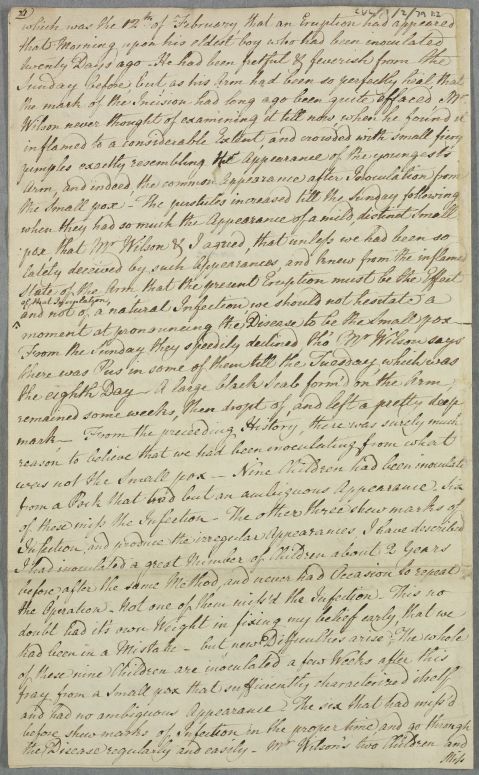 21
which was the 12th of February that an Eruption had appeared
that Morning upon his eldest boy who had been inoculated
twenty Days ago. He had been fretful & feverish from the
Sunday before but as his Arm had been so perfectly heal that
the mark of the Incision had long ago been quite effaced Mr
Wilson never thought of examining it till now when he found it
inflamed to a considerable Extent, and crowded with small fiery
pimples exactly resembling the Appearance of the youngest's
Arm, and indeed the common Appearance after Inoculation from
the Small pox - The pustules increased till the Sunday following
when they had so much the Appearance of a mild, distinct Small
pox that Mr Wilson & I agreed, that unless we had been so
lately deceived by such Appearances, and knew from the inflamed
State of the Arm that the present Eruption must be the Effect
of that Inoculation,
and not of a natural Infection, we should not hesitate a
moment at pronouncing the Disease to be the Small pox -
From the Sunday they speedily declined tho' Mr Wilson says
there was Pus in some of them till the Tuesday which was
the eighth Day - A large black Scab form'd on the Arm
remained some weeks, then dropt of, and left a pretty deep
mark - From the preceeding History, there was surely much
reason to believe that we had been inoculating from what
was not the Small pox - Nine Children had been inoculate
from a Pock that had but an ambiguous Appearance. Six
of these miss the Infection - The other three shew marks of
Infection, and produce the irregular Appearances, I have described
I had inoculated a great Number of Children about 2 Years
before after the same Method and never had Occasion to repeat
the Operation. Not one of them miss'd the Infection. This no
doubt had it's own Weight in fixing my belief early, that we
had been in a Mistake - but new Difficulties arise. The whole
of these nine Children are inoculated a few Weeks after this
fray from a Small pox that sufficiently characterized itself
and had no ambiguous Appearance. The six that had miss'd
before shew marks of Infection in the proper time and go through
the Disease regularly and easily - Mr Wilson's two Children and
Miss